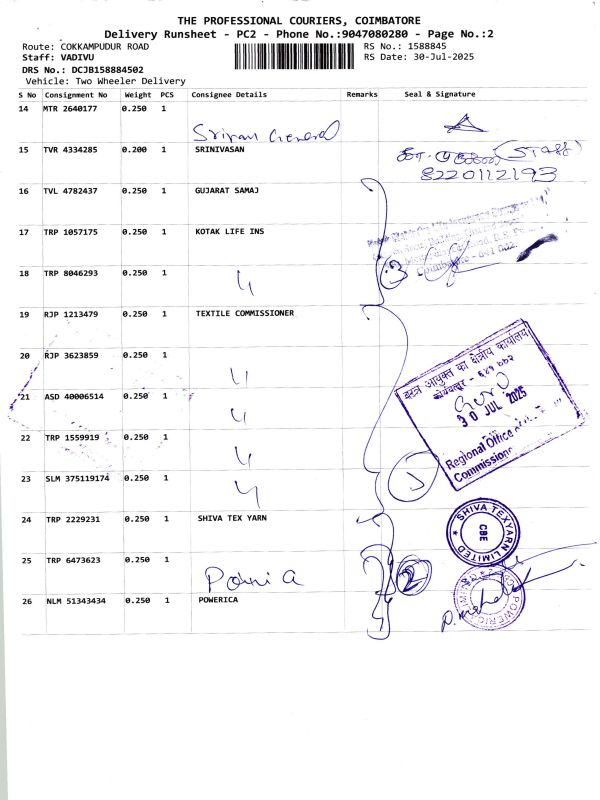 THE PROFESSIONAL COURIERS, COIMBATORE
Delivery Runsheet - PC2 - Phone No.:9047080280 - Page No.:2
Route: COKKAMPUDUR ROAD
RS No.: 1588845
Staff: VADIVU
RS Date: 30-Jul-2025
DRS No.: DCJB158884502
Vehicle: Two Wheeler Delivery
S No Consignment No Weight PCS Consignee Details Remarks Seal & Signature
14 MTR 2640177 0.250 1
15 TVR 4334285 0.200 1 SRINIVASAN
(Staff)
8220112193
16 TVL 4782437 0.250 1 GUJARAT SAMAJ
17 TRP 1057175 0.250 1 KOTAK LIFE INS
18 TRP 8046293 0.250 1
Coimbatore - 641 002.
19 RJP 1213479 0.250 1 TEXTILE COMMISSIONER
20 RJP 3623859 0.250 1
वस्त्र आयुक्त का क्षेत्रीय कार्यालय
21 ASD 40006514 0.250 1
30 JUL 2025
22 TRP 1559919 0.250 1
Regional Office of
Commissione
23 SLM 375119174 0.250 1
24 TRP 2229231 0.250 1 SHIVA TEX YARN
SHIVA TEXYARN LIMITED
CBE
25 TRP 6473623 0.250 1
26 NLM 51343434 0.250 1 POWERICA